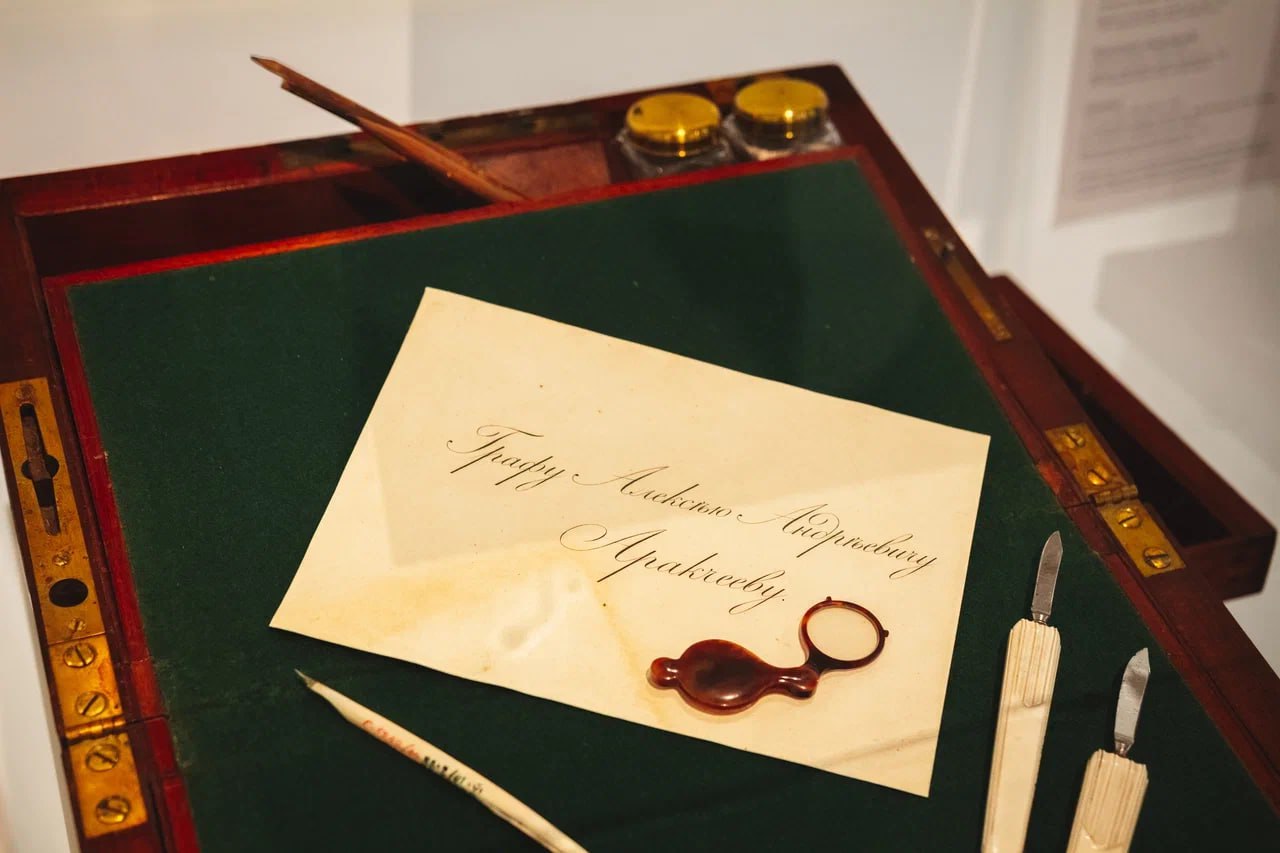 Графу Алексѣю Андрѣевичу
Аракчееву.